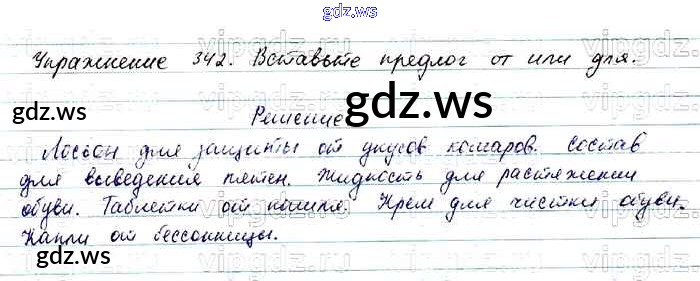 gdz.ws
Упражнение 342. Вставьте предлог от или для.
gdz.ws
Решение
Лосьон для защиты от укусов комаров. Состав
для выведения пятен. Жидкость для растяжении
обуви. Таблетки от кашля. Крем для чистки обуви.
Капли от бессонницы.
gdz.ws
gdz.ws